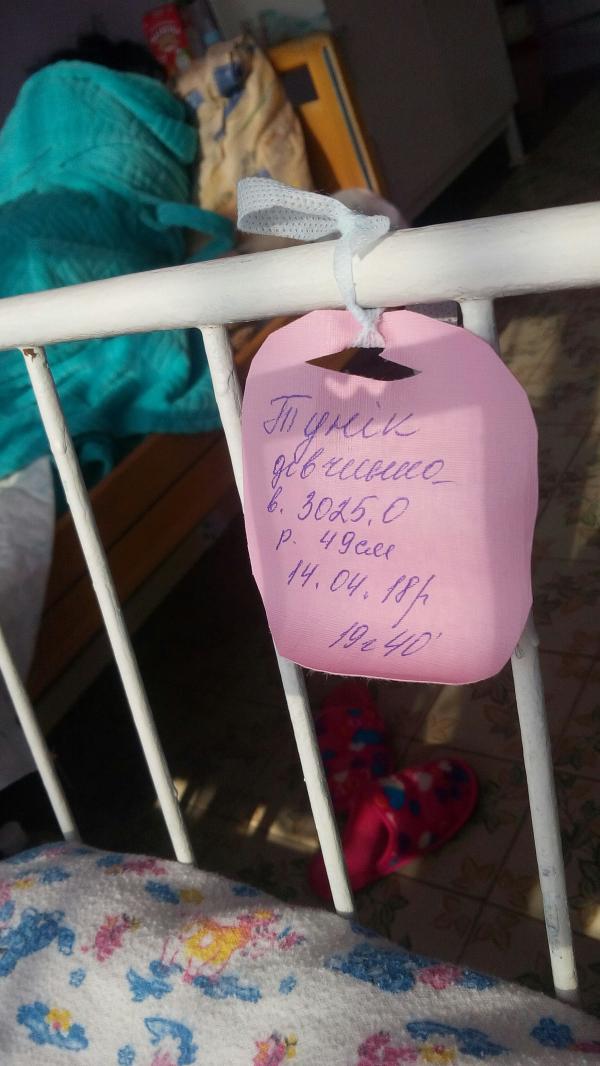 Тунік
дівчинка
в. 3025,0
р. 49см
14.04.18р
19г 40'